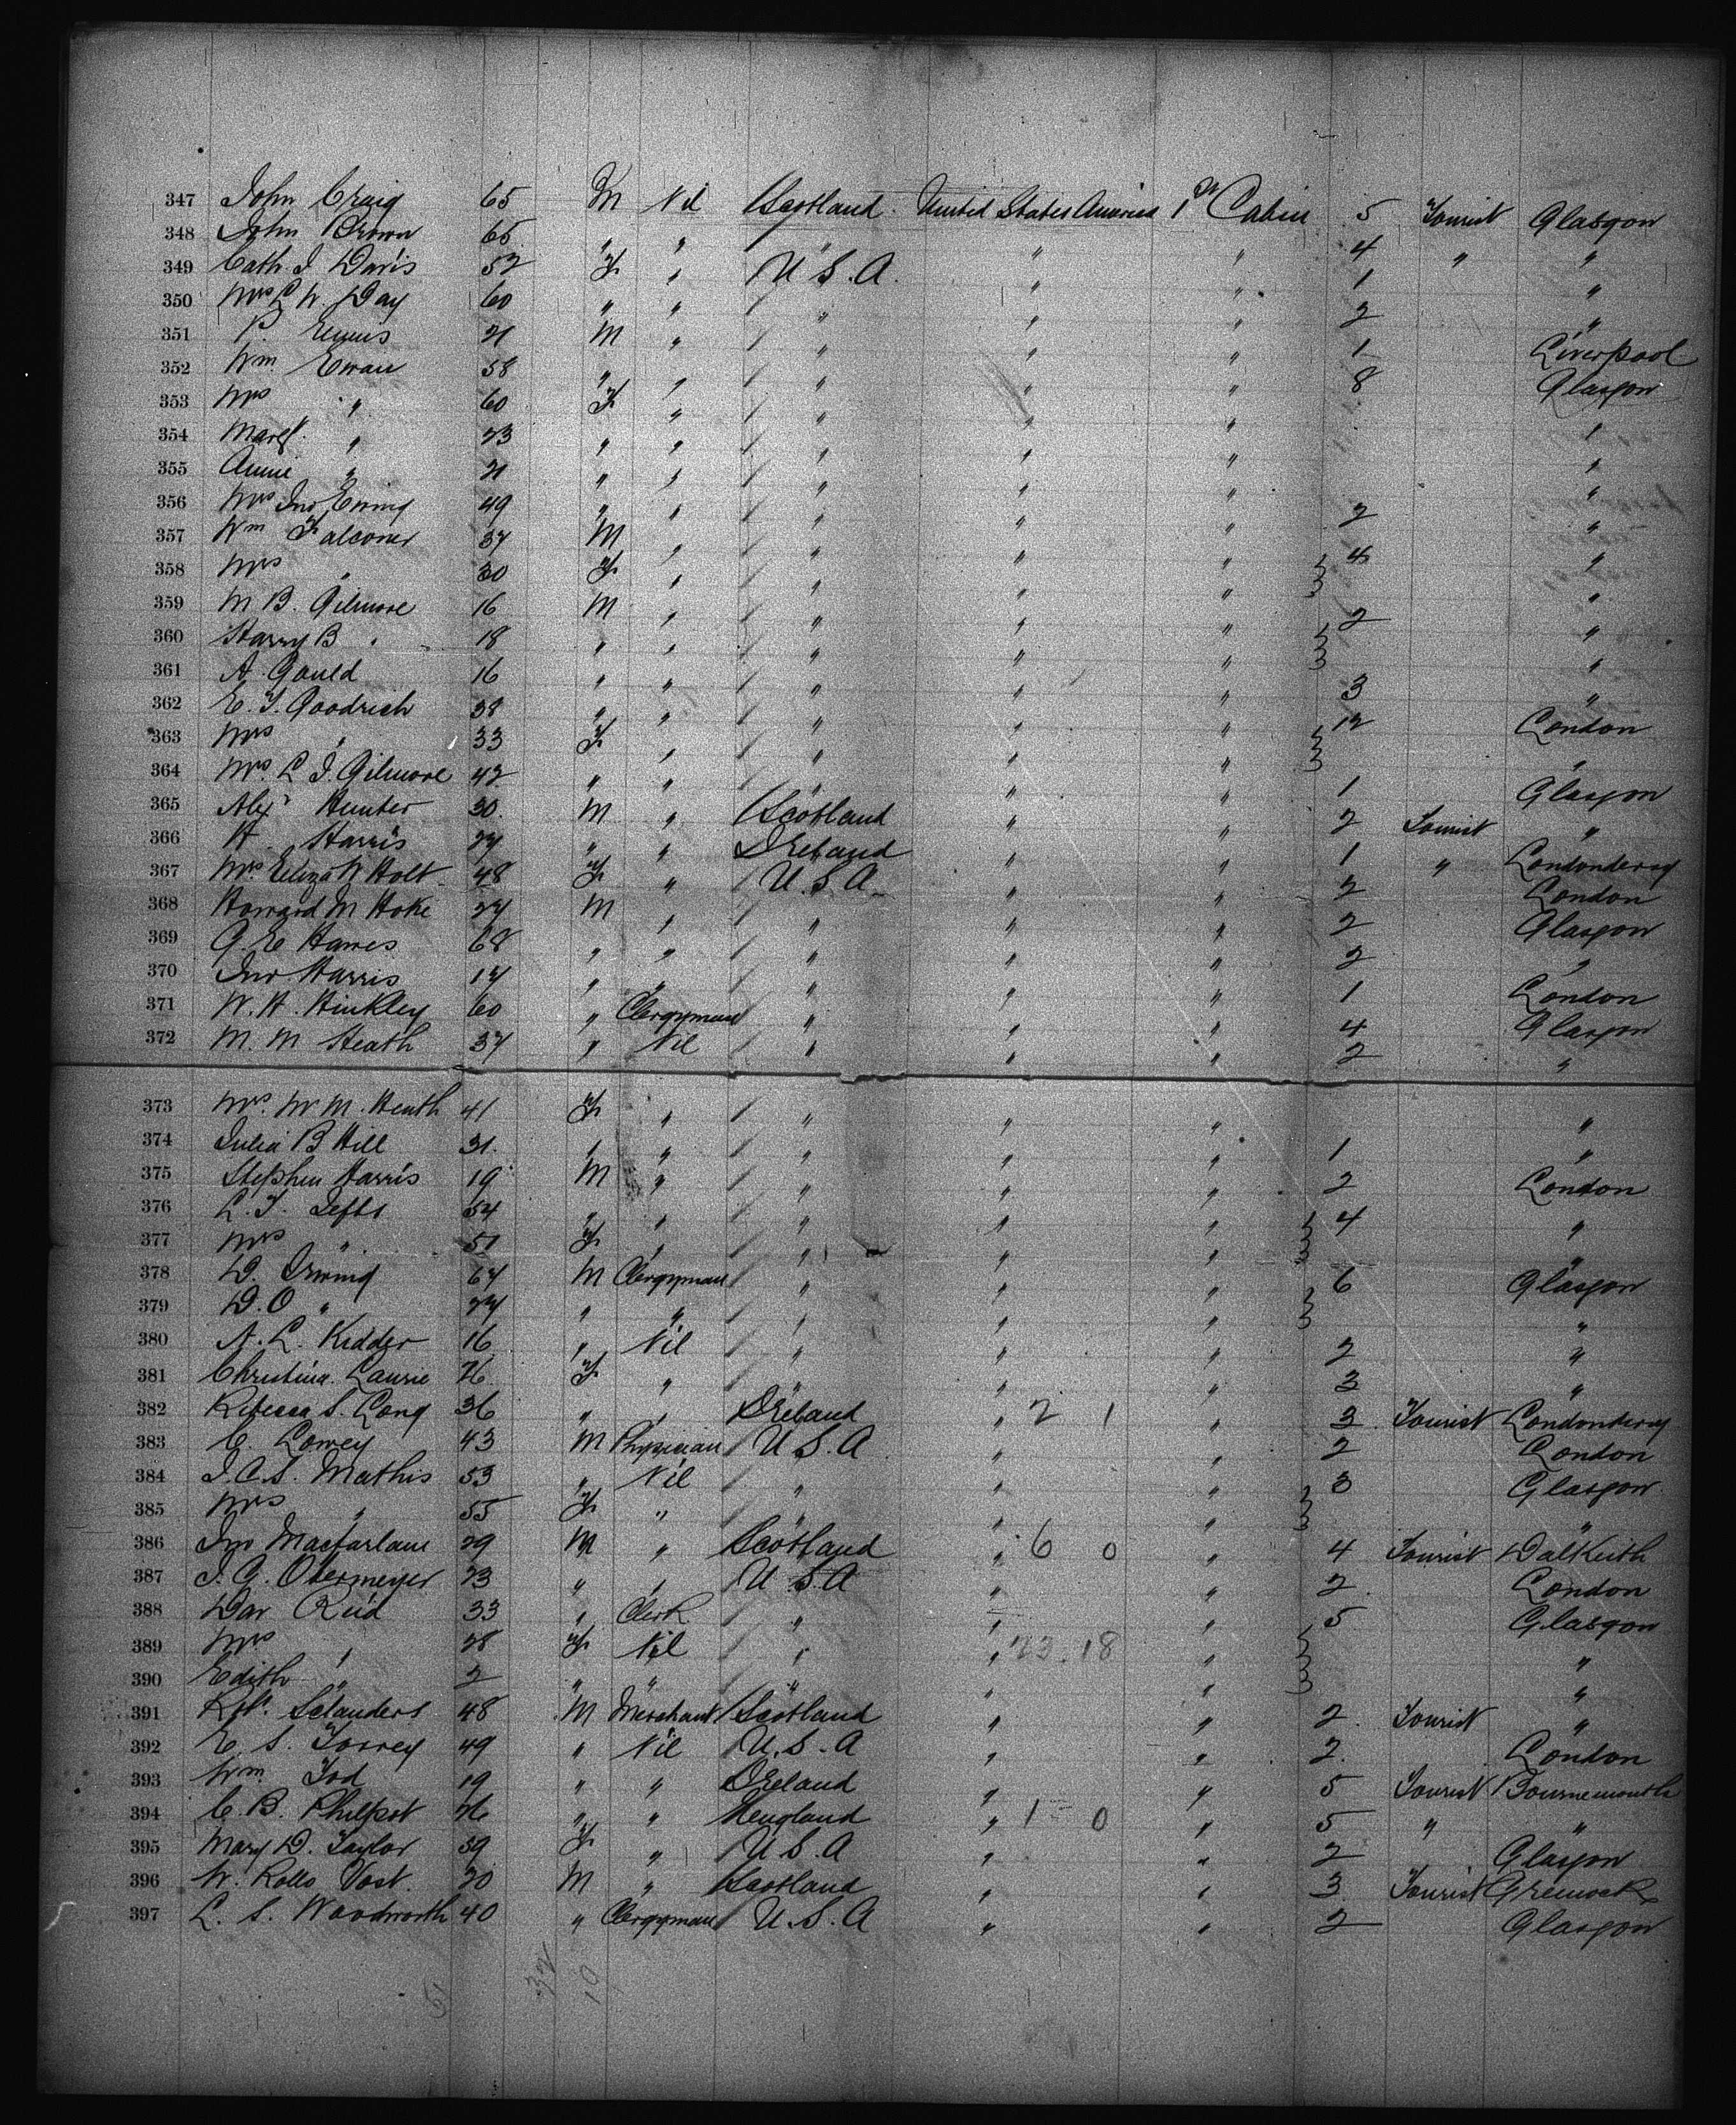 347 John Craig 65 M Nil Scotland. United States America 1st Cabin 5 Tourist Glasgow
348 John Brown 65 " " " " " 4 " "
349 Cath. J. Davis 52 F " U.S.A. " " 1 "
350 Mrs L W. Day 60 " " " " " 2 "
351 P. 21 M " " " " 1 Liverpool
352 Wm Ewan 58 " " " " " 8 Glasgow
353 Mrs " 60 F " " " " "
354 Margt. " 23 " " " " " "
355 Annie " 21 " " " " " "
356 Mrs Jno Ewing 49 " " " " " 2 "
357 Wm Falconer 37 M " " " " 4 "
358 Mrs " 30 F " " " " "
359 M. B. Gilmore 16 M " " " " 2 "
360 Harry B " 18 " " " " " "
361 A. Gould 16 " " " " " 3 "
362 E. T. Goodrich 38 " " " " " 12 London
363 Mrs " 33 F " " " " "
364 Mrs. L J. Gilmore 42 " " " " " 1 Glasgow
365 Alexr Hunter 30. M " Scotland " " 2 Tourist "
366 H. Harris 27 " " Ireland " " 1 " Londonderry
367 Mrs Eliza W Holt 48 F " U.S.A. " " 2 London
368 Howard M Hoke 27 M " " " " 2 Glasgow
369 G. E Hawes 68 " " " " " 2 "
370 Jno Harris 17 " " " " " 1 London
371 W. H. Hinkley 60 " Clergyman " " " 4 Glasgow
372 M. M Heath 37 " Nil " " " 2 "
373 Mrs. M M. Heath 41 F " " " " "
374 Julia B Hill 31. " " " " " 1 "
375 Stephen Harris 19 M " " " " 2 London
376 L. T. Jefts 54 " " " " " 4 "
377 Mrs " 51 F " " " " "
378 D. Irving 67 M Clergyman " " " 6 Glasgow
379 D. O " 27 " " " " " "
380 A. L. Kidder 16 " Nil " " " 2 "
381 Christina Laurie 26 F " " " " 3 "
382 Rebecca S. Long 36 " " Ireland " 2 1 " 3 Tourist Londonderry
383 C. Lowey 43 M Physician U.S.A. " " 2 London
384 J. C. S. Mathis 53 " Nil " " " 3 Glasgow
385 Mrs " 55 F " " " " "
386 Jno Macfarlane 29 M " Scotland " 6 0 " 4 Tourist Dalkeith
387 J. G. Obermeyer 23 " " U.S.A " " 2. London
388 Dav Reid 33 " Clerk " " " 5 Glasgow
389 Mrs " 28 F Nil " " 23.18 " "
390 Edith " 2 " " " " " "
391 Robt. Sclanders 48 M Merchant Scotland " " 2. Tourist "
392 E. S. Torrey 49 " Nil U.S.A " " 2. London
393 Wm. Tod 19 " " Ireland " " 5 Tourist Bournemouth
394 C. B. Philpot 26 " " England " 1 0 " 5 " "
395 Mary D. Taylor 39 F " U.S.A " " 2 Glasgow
396 W. Rollo Vost. 20 M " Scotland " " 3 Tourist Greenock
397 L. S. Woodworth 40 " Clergyman U.S.A " " 2 Glasgow
51 32 19